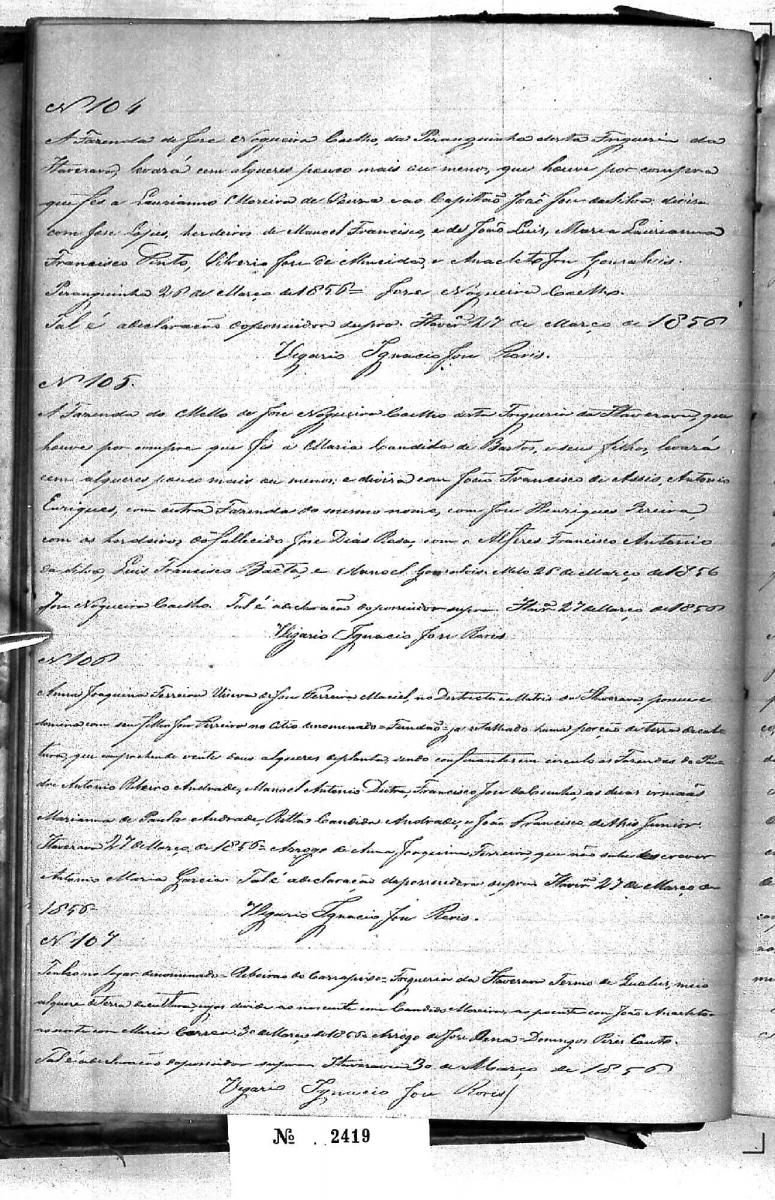 N 104
A Fazenda de Jose Nogueira Coelho, da Piranguinha desta Freguezia da
Itaverava, levará cem alqueres pouco mais ou menos, que houve por compra
que fes a Laurianno Moreira de Souza e ao Capitão João Jose da Silva: divisa
com Jose Lopes, herdeiros de Manoel Francisco, e de João Luis, Maria Laurianna
Francisco Pinto, Silverio Jose de Almeida, e Anacleto Jose Gonsalvis.
Piranguinha 26 de Março de 1856 = Jose Nogueira Coelho.
Tal é a declaração do possuidor supra. Itavera 27 de Março de 1856
Vigario Ignacio Jose
N 105.
A Fazenda do Mello de Jose Nogueira Coelho desta Freguezia da Itaverava, que
houve por compra que fis a Maria Candida de Bastos, e seus filhos, levará
cem alqueres pouco mais ou menos; e divisa com João Francisco de Assis, Antonio
Enriques, com outra Fazenda do mesmo nome, com Jose Henriques Pereira,
com os herdeiros do fallecido Jose Dias Rosa, com o Alferes Francisco Antonio
da Silva, Luis Francisco Baêta, e Manoel Gonsalvis. Melo 26 de Março de 1856
Jose Nogueira Coelho. Tal é a declaração do possuidor supra. Itavera 27 de Março de 1856
Vigario Ignacio Jose
N 106
Anna Joaquina Ferreira Viuva de Jose Ferreira Maciel, no Destricto e Matris da Itaverava, possue e
domina com seu filho Jose Ferreira no Citio denominado = Fundão = ja retalhado huma porção de terra de cul-
tura, que comprehende vente dous alqueres de planta, sendo confinantes em circulo as Fazendas do Pa-
dre Antonio Ribeiro Andrade, Manoel Antonio Dutra, Francisco Jose da Cunha, as duas irmaãs
Marianna de Paula Andrade, Ritta Candida Andrade, e João Francisco de Assis Junior.
Itaverava 27 de Março, de 1856 = Arrogo de Anna Joaquina Ferreira, que não sabe escrever
Antonio Maria Garcia. Tal é a declaração da possuidora supra Itavera 27 de Março de
1856 = Vigario Ignacio Jose
N 107
Tenho no logar denominado = Ribeirão do Carrapixo = Freguezia da Itaverava Termo de Queluz, meio
alquere de terra de cultura, cuja divida ao nascente com Candido Moreira, ao poente com João Anacleto
ao norte com Maria Correa 30 de Março de 1856 Arrogo de Jose = Domingos Pires Couto.
Tal é a declaração do possuidor supra Itaverava 30 de Março de 1856
Vigario Ignacio Jose
Nº 2419